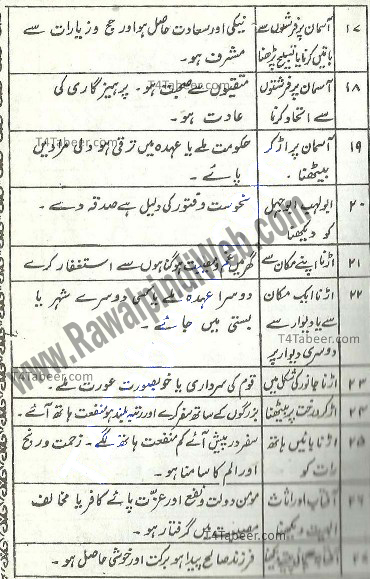 ۱۷ آسمان پر فرشتوں سے نیکی اور سعادت حاصل ہو اور حج و زیارات سے
باتیں کرنا یا تسبیح پڑھنا مشرف ہو۔
T4Tabeer.com
۱۸ آسمان پر فرشتوں متقیوں سے صحبت ہو۔ پرہیزگاری کی
سے اتحاد کرنا عادت ہو۔
۱۹ آسمان پر اڑ کر حکومت ملے یا عہدہ میں ترقی ہو
T4Tabeer.com
بیٹھنا۔ پائے۔
۲۰ ابولہب ابوجہل نحوست و فتور کی دلیل ہے صدقہ دے۔
کو دیکھنا
۲۱ اڑنا اپنے مکان سے گھر میں غم و مصیبت ہو گناہوں سے استغفار کرے
۲۲ اڑنا ایک مکان دوسرا عہدہ ملے یا کسی دوسرے شہر یا
سے یا دیوار سے بستی میں جائے۔
دوسری دیوار پر
T4Tabeer.com
www.RawalpindiWeb.com
۲۳ اڑنا جانور کی شکل میں قوم کی سرداری یا خوبصورت عورت ملے۔
۲۴ اڑ کر درخت پر بیٹھنا بزرگوں کے ساتھ سفر کرے اور رتبہ بلند ہو منفعت ہاتھ آئے۔
۲۵ اڑنا بائیں ہاتھ سفر درپیش آئے کم منفعت ہاتھ لگے۔ زحمت و رنج
رات کو اور الم کا سامنا ہو۔
۲۶ آفتاب اور اثاث مومن دولت و نفع اور عزت پائے کافر یا مخالف
البیت دیکھنا مصیبت میں گرفتار ہو۔
T4Tabeer.com
فرزند صالح پیدا ہو برکت اور خوشی حاصل ہو۔